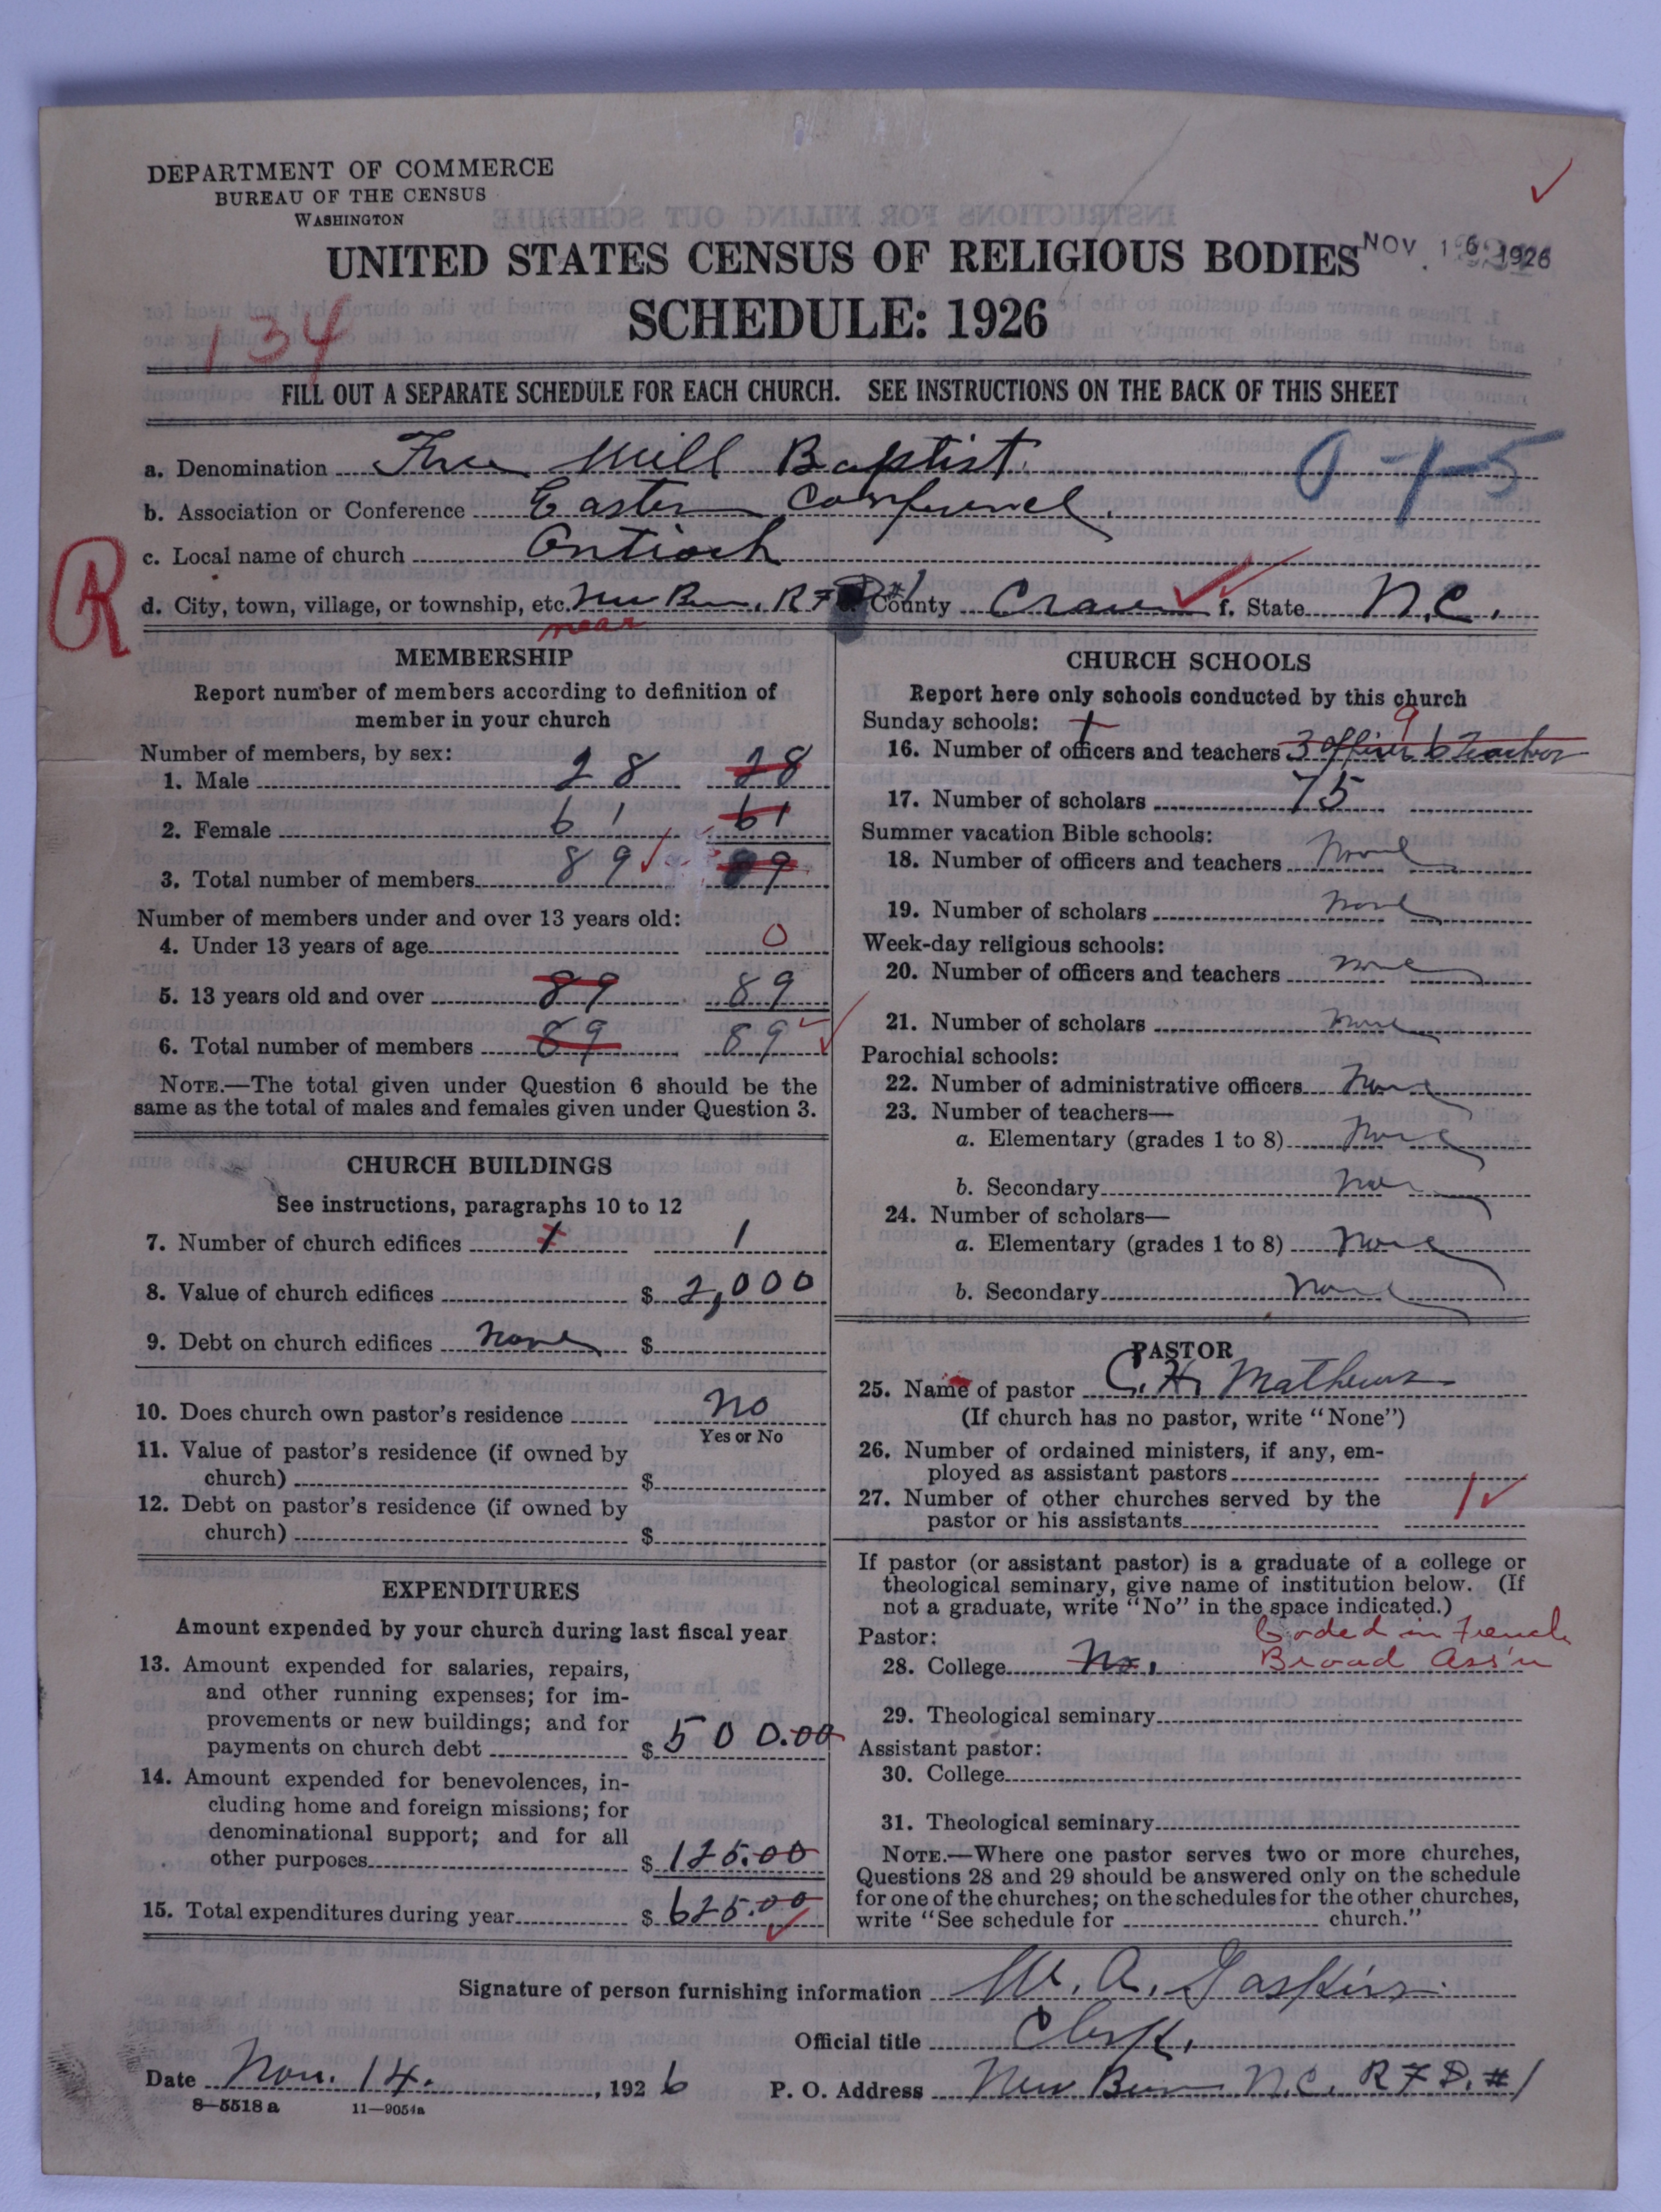 DEPARTMENT OF COMMERCE
BUREAU OF THE CENSUS
WASHINGTON
UNITED STATES CENSUS OF RELIGIOUS BODIES
NOV. 16 1926
SCHEDULE: 1926
134
FILL OUT A SEPARATE SCHEDULE FOR EACH CHURCH. SEE INSTRUCTIONS ON THE BACK OF THIS SHEET
a. Denomination Free Will Baptist. 0-1-5
b. Association or Conference Eastern Conference.
c. Local name of church Antioch
R
d. City, town, village, or township, etc. New Bern. R F D #1 County Craven f. State N.C.
near
MEMBERSHIP
Report number of members according to definition of
member in your church
Number of members, by sex:
1. Male 28 28
2. Female 61 61
3. Total number of members 89 89
Number of members under and over 13 years old:
4. Under 13 years of age 0
5. 13 years old and over 89 89
6. Total number of members 89 89
NOTE.—The total given under Question 6 should be the
same as the total of males and females given under Question 3.
CHURCH BUILDINGS
See instructions, paragraphs 10 to 12
7. Number of church edifices 1 1
8. Value of church edifices $ 2,000
9. Debt on church edifices None $
10. Does church own pastor's residence No
Yes or No
11. Value of pastor's residence (if owned by
church) $
12. Debt on pastor's residence (if owned by
church) $
EXPENDITURES
Amount expended by your church during last fiscal year
13. Amount expended for salaries, repairs,
and other running expenses; for im-
provements or new buildings; and for
payments on church debt $ 500.00
14. Amount expended for benevolences, in-
cluding home and foreign missions; for
denominational support; and for all
other purposes $ 125.00
15. Total expenditures during year $ 625.00
CHURCH SCHOOLS
Report here only schools conducted by this church
Sunday schools: 9
16. Number of officers and teachers 3 officer 6 Teacher
17. Number of scholars 75
Summer vacation Bible schools:
18. Number of officers and teachers None
19. Number of scholars None
Week-day religious schools:
20. Number of officers and teachers None
21. Number of scholars None
Parochial schools:
22. Number of administrative officers None
23. Number of teachers—
a. Elementary (grades 1 to 8) None
b. Secondary None
24. Number of scholars—
a. Elementary (grades 1 to 8) None
b. Secondary None
PASTOR
25. Name of pastor C. H. Mathews
(If church has no pastor, write "None")
26. Number of ordained ministers, if any, em-
ployed as assistant pastors
27. Number of other churches served by the
pastor or his assistants 1
If pastor (or assistant pastor) is a graduate of a college or
theological seminary, give name of institution below. (If
not a graduate, write "No" in the space indicated.)
Pastor: Coded in French
28. College No. Broad Ass'n
29. Theological seminary
Assistant pastor:
30. College
31. Theological seminary
NOTE.—Where one pastor serves two or more churches,
Questions 28 and 29 should be answered only on the schedule
for one of the churches; on the schedules for the other churches,
write "See schedule for church."
Signature of person furnishing information W. A. Gaskins.
Official title Clerk.
Date Nov. 14. , 1926 P. O. Address New Bern N.C. R F D. #1
8-5518 a 11-9054a